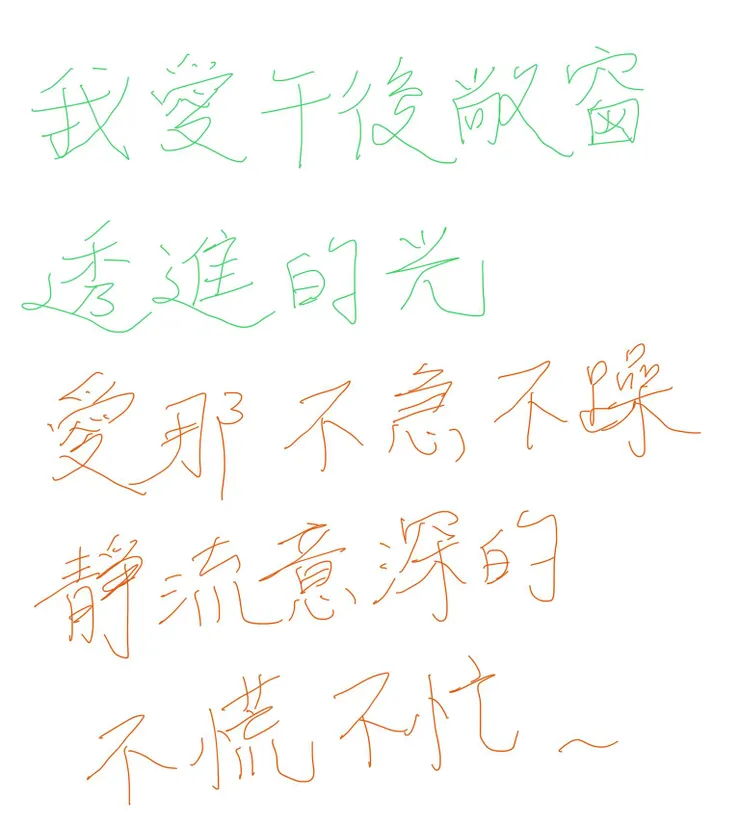 我愛午後敞窗
透進的光
愛那不急不躁
靜流意深的
不慌不忙～